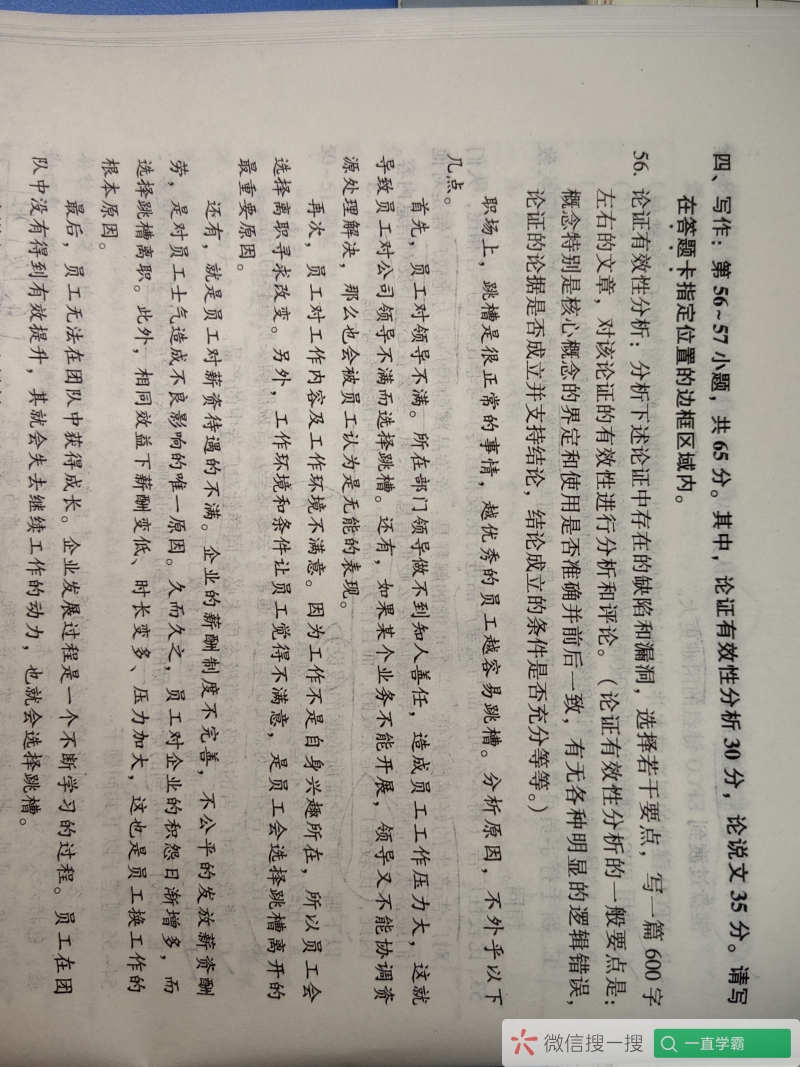 四、写作：第 56~57 小题，共 65 分。其中，论证有效性分析 30 分，论说文 35 分。请写
在答题卡指定位置的边框区域内。
56. 论证有效性分析：分析下述论证中存在的缺陷和漏洞，选择若干要点，写一篇 600 字
左右的文章，对该论证的有效性进行分析和评论。（论证有效性分析的一般要点是：
概念特别是核心概念的界定和使用是否准确并前后一致，有无各种明显的逻辑错误，
论证的论据是否成立并支持结论，结论成立的条件是否充分等等。）
职场上，跳槽是很正常的事情，越优秀的员工越容易跳槽。分析原因，不外乎以下
几点。
首先，员工对领导不满。所在部门领导做不到知人善任，造成员工工作压力大，这就
导致员工对公司领导不满而选择跳槽。还有，如果某个业务不能开展，领导又不能协调资
源处理解决，那么也会被员工认为是无能的表现。
再次，员工对工作内容及工作环境不满意。因为工作不是自身兴趣所在，所以员工会
选择离职寻求改变。另外，工作环境和条件让员工觉得不满意，是员工会选择跳槽离开的
最重要原因。
还有，就是员工对薪资待遇的不满。企业的薪酬制度不完善，不公平的发放薪资酬
劳，是对员工士气造成不良影响的唯一原因。久而久之，员工对企业的积怨日渐增多，而
选择跳槽离职。此外，相同效益下薪酬变低、时长变多、压力加大，这也是员工换工作的
根本原因。
最后，员工无法在团队中获得成长。企业发展过程是一个不断学习的过程。员工在团
队中没有得到有效提升，其就会失去继续工作的动力，也就会选择跳槽。
微信搜一搜
一直学霸